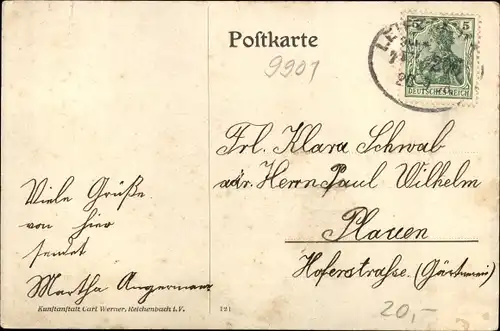 Postkarte
9901
5 5
DEUTSCHES REICH
Frl. Klara Schwab
adr. Herrn Paul Wilhelm
Plauen
Hoferstraße. (Gärtnerei)
Viele Grüße
von hier
sendet
Martha Angermann
Kunstanstalt Carl Werner, Reichenbach i. V.
121
20,-